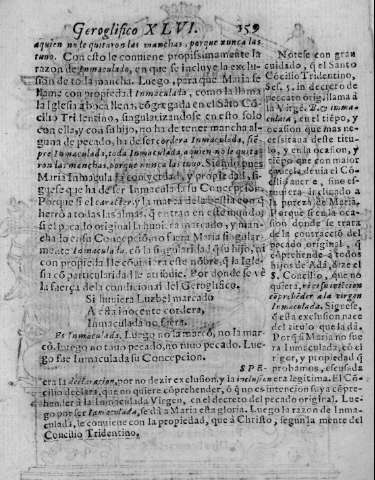 Geroglifico XLVI. 359
aquien no le quitaron las manchas, porque nunca las
tuvo. Con esto le contiene propissimamente la
razon de Inmaculada, en que se incluye la exclu-
sion de toda mancha. Luego, para que Maria se
llame con propiedad Inmaculada, como la llama
la Iglesia à boca llena, cõgregada en el Sãto Cõci-
lio Tridentino, singularizandose en esto solo
con ella, y con sa hijo, no ha de tener mancha al-
guna de pecado, ha de ser cordera Inmaculada, siẽ-
pre Inmaculada, toda Inmaculada, a quien no le quita-
ron las manchas, porque nunca las tuvo. Siendo pues
Maria Inmaculada con verdad, y propiedad, si-
guese que ha de ser Inmaculada su Concepcion.
Porque si el caracter, y la marca de la bestia con q̃
herrò a todas las almas, q̃ entran en este mundo,
si el pecado original la huviera marcado, y man-
chado en su Concepcion no fuera Maria singular-
mente Inmaculada, cõ la singularidad q̃ su hijo, ni
con propiedad llevàra este nõbre, q̃ la Iglesia
cõ particularidad le atribuie. Por donde se vè
la fuerça de la condicional del Geroglifico.
Si huviera Luzbel marcado
A esta inocente cordera,
Inmaculada no fuera.
Es Inmaculada. Luego no la marcò, no la mar-
cò, luego no tuvo pecado, no tuvo pecado. Lue-
go fue Inmaculada su Concepcion.
SPE-
Notese con gran
cuidado, q̃ el Santo
Cõcilio Tridentino,
Ses. 5. in decreto de
peccato orig. llama à
la Virgẽ. B. Inma-
culara, en el tiẽpo, y
ocasion que mas ne-
cessitava deste titu-
lo, y en la ocasion, y
tiẽpo que con maior
del Cõ-
cilio
diesse llamado a
la pureza de Maria.
Porque si en la oca-
sion donde se trata
de la contraccion del
pecado original, q̃
comprehende à todos
hijos de Adã, dize el
S. Concilio, que no
quiera,
cõprehẽder à la virgen
Inmaculada. Siguese,
q̃ esta exclusion nace
del titulo que la dà.
Porq̃ si Maria no fue-
ra Inmaculada, cõ el
rigor, y propiedad q̃
probamos, escusada
era la declaracion, por no dezir exclusion, y la inclusion era legitima. El Cõ-
cilio declara, que no quiere cõprehender, ò q̃ no es intencion suya cõpre-
hender à la Inmaculada Virgen, en el decreto del pecado original. Luego
por ser Inmaculada, se dà a Maria esta gloria. Luego la razon de Inma-
culada, le conviene con la propiedad, que à Christo, segun la mente del
Concilio Tridentino.